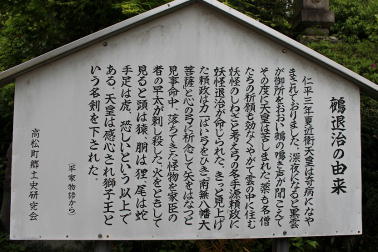 鵺退治の由来
仁平三年夏近衛天皇は奇病になや
まされておりました。深夜になると黒雲
が御所をおおい鵺の鳴き声が聞こえて
その度に天皇は苦しまれた。薬も名僧
たちの祈願も効なくやがて雲の中に住む
妖怪のしわざと考え弓の名手源頼政に
妖怪退治が命じられた。きっと見上げ
た頼政は力一ぱい弓をひき「南無八幡大
菩薩」と心の弓に祈念して矢をはなつと
見事命中、落ちてきた怪物を家臣の
者の早太が刺し殺した。火をともして
見ると頭は猿、胴は狸、尾は蛇
手足は虎、恐しいという以上で
ある。天皇は感心され獅子王と
いう名剣を下された。
(平家物語から)
高松町郷土史研究会